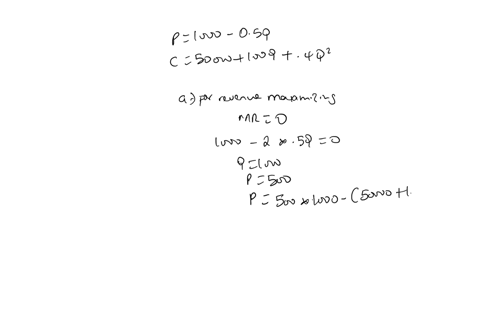 P = 1000 - 0.5Q
C = 50000 + 100Q + .4Q²
a) For revenue maximizing
MR = 0
1000 - 2 * .5Q = 0
Q = 1000
P = 500
P = 500 * 1000 - (5000 + 1.